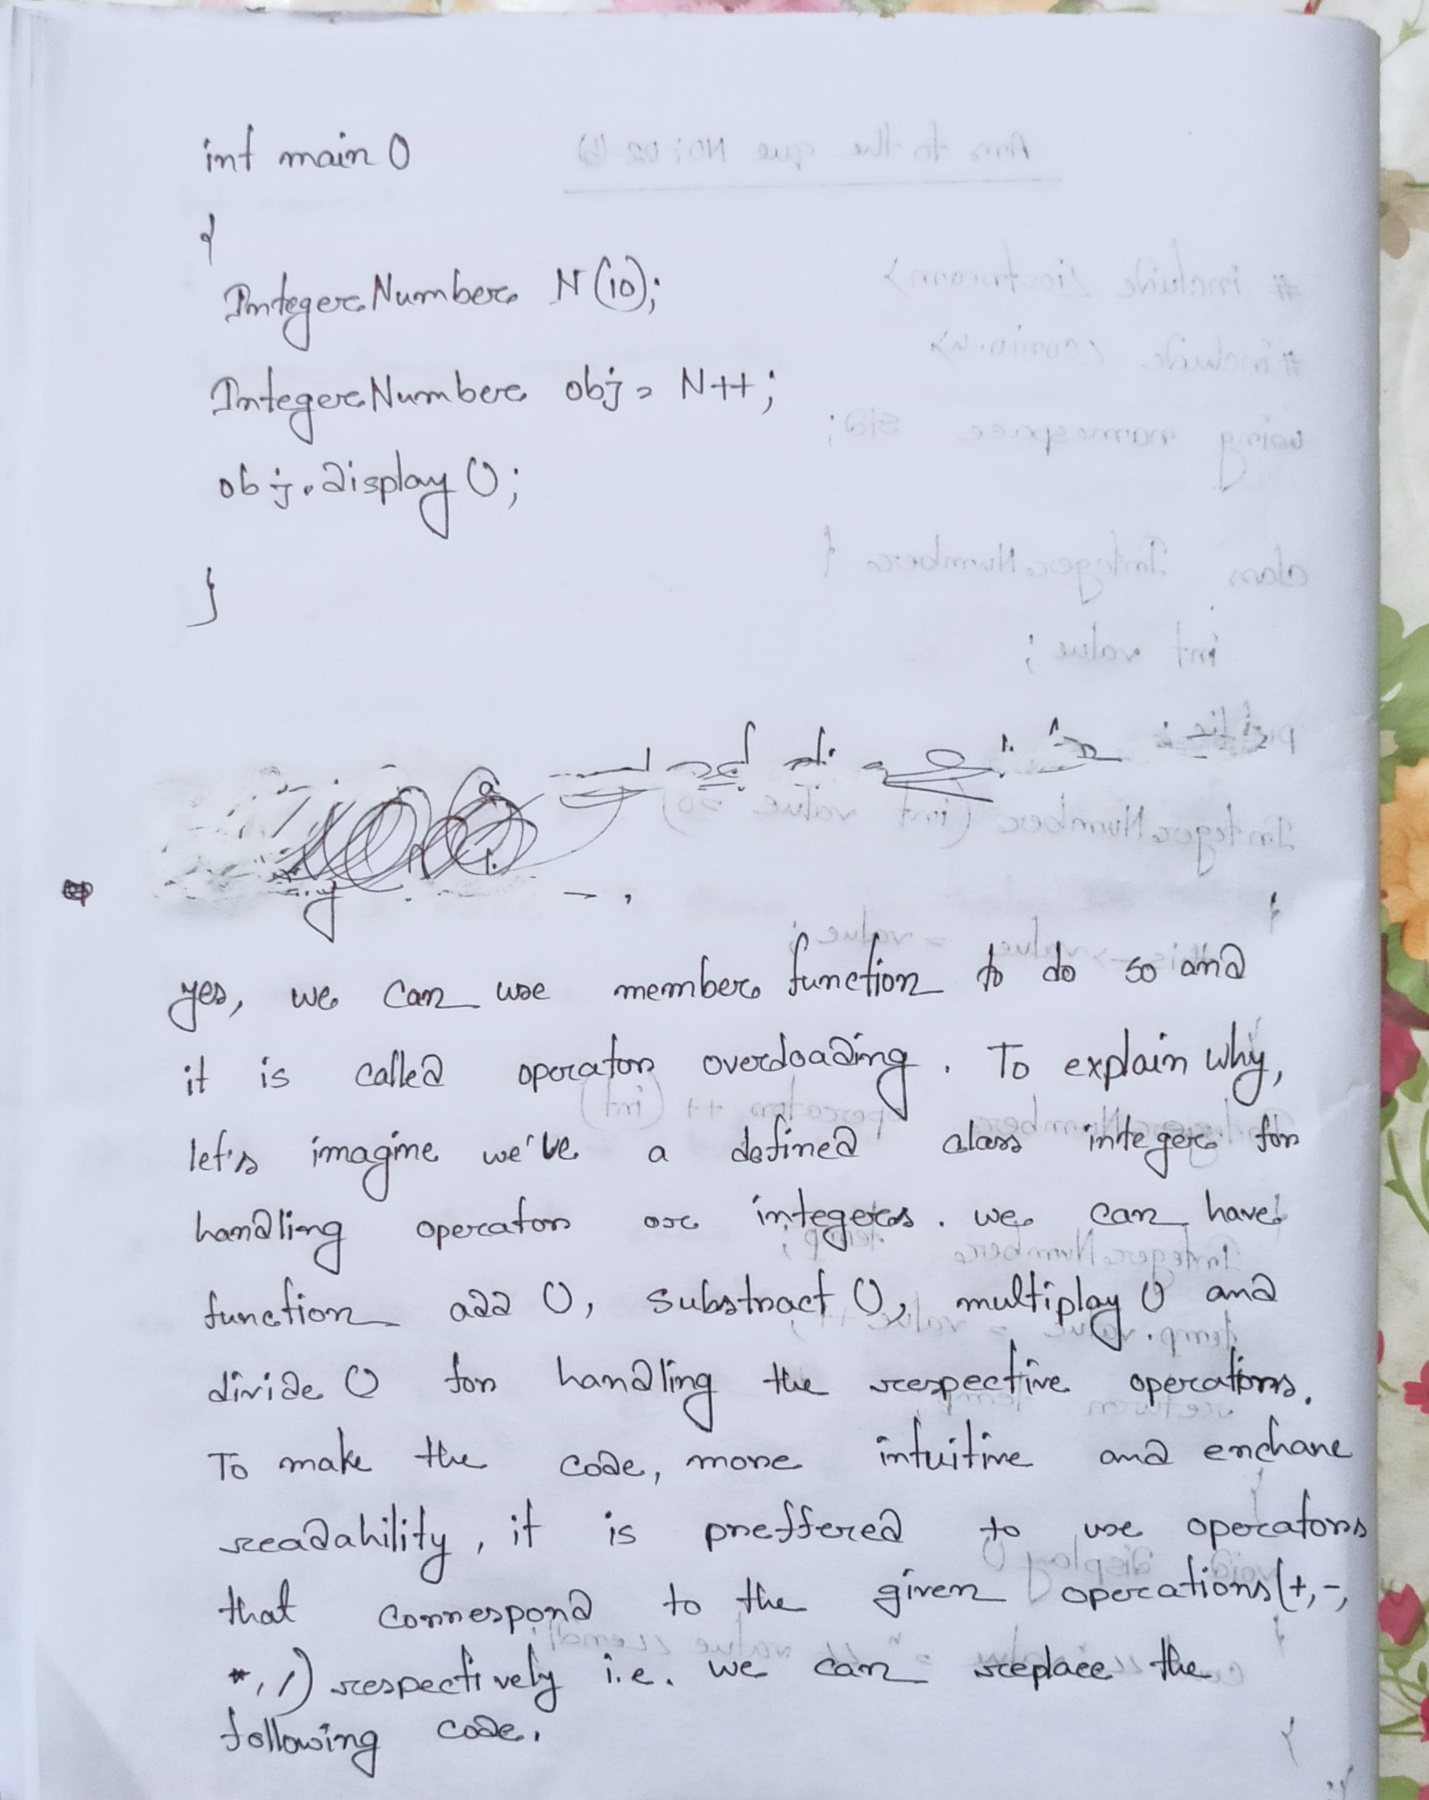 int main ()
{
IntegerNumber N(10);
IntegerNumber obj = N++;
obj.display ();
}
yes, we can use member function to do so and
it is called operator overloading. To explain why,
let's imagine we've a defined class integer for
handling operator or integers. we can have
function add (), substract (), multiplay () and
divide () for handling the respective operations.
To make the code, more intuitive and enchane
readability, it is preffered to use operators
that correspond to the given operations (+, -,
*, /) respectively i.e. we can replace the
following code.